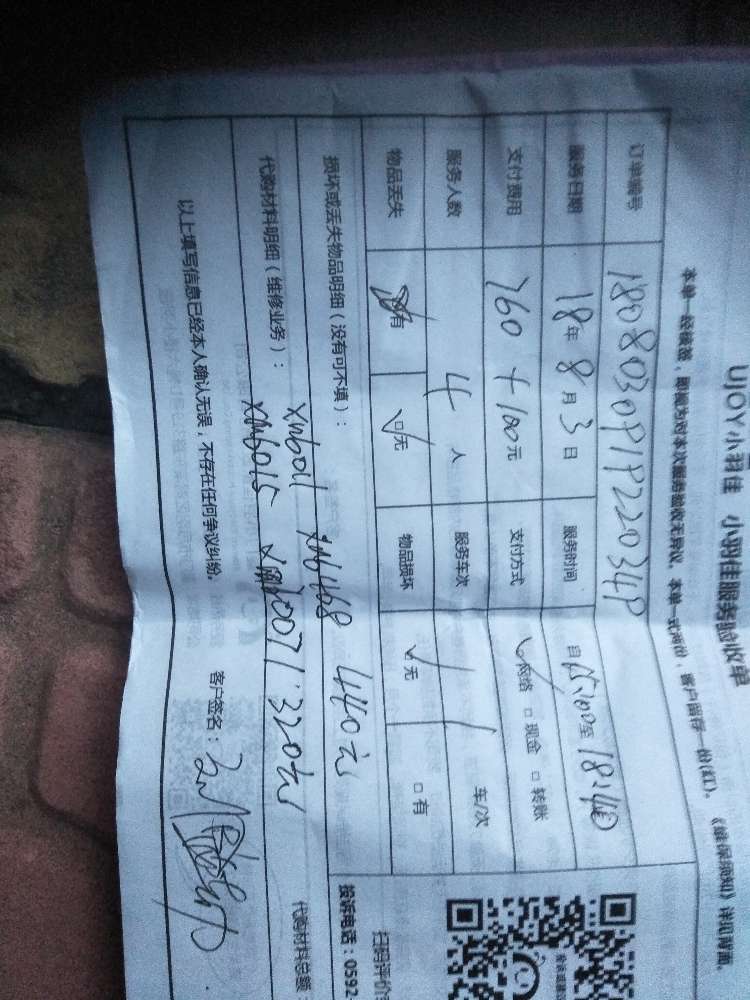 UJOY小羽佳 小羽佳服务验收单
本单一经签署，即视为对本次服务验收无异议，本单一式两份，客户留存一份(红)。《维保须知》详见背面。
订单编号
服务日期 18年8月3日 服务时间 自15:00至18:40
支付费用 760+100元 支付方式 ☑网络 □现金 □转账
服务人数 4人 服务车次 1 车/次
物品丢失 有 ☑无 物品损坏 ☑无 □有
损坏或丢失物品明细（没有可不填）：
xm6011 xm6168 440元
代购材料明细（维修业务）：
xm6015 xm6007 1:320元
代购材料总额
以上填写信息已经本人确认无误，不存在任何争议纠纷。
客户签名：
扫码评价
投诉电话：0592